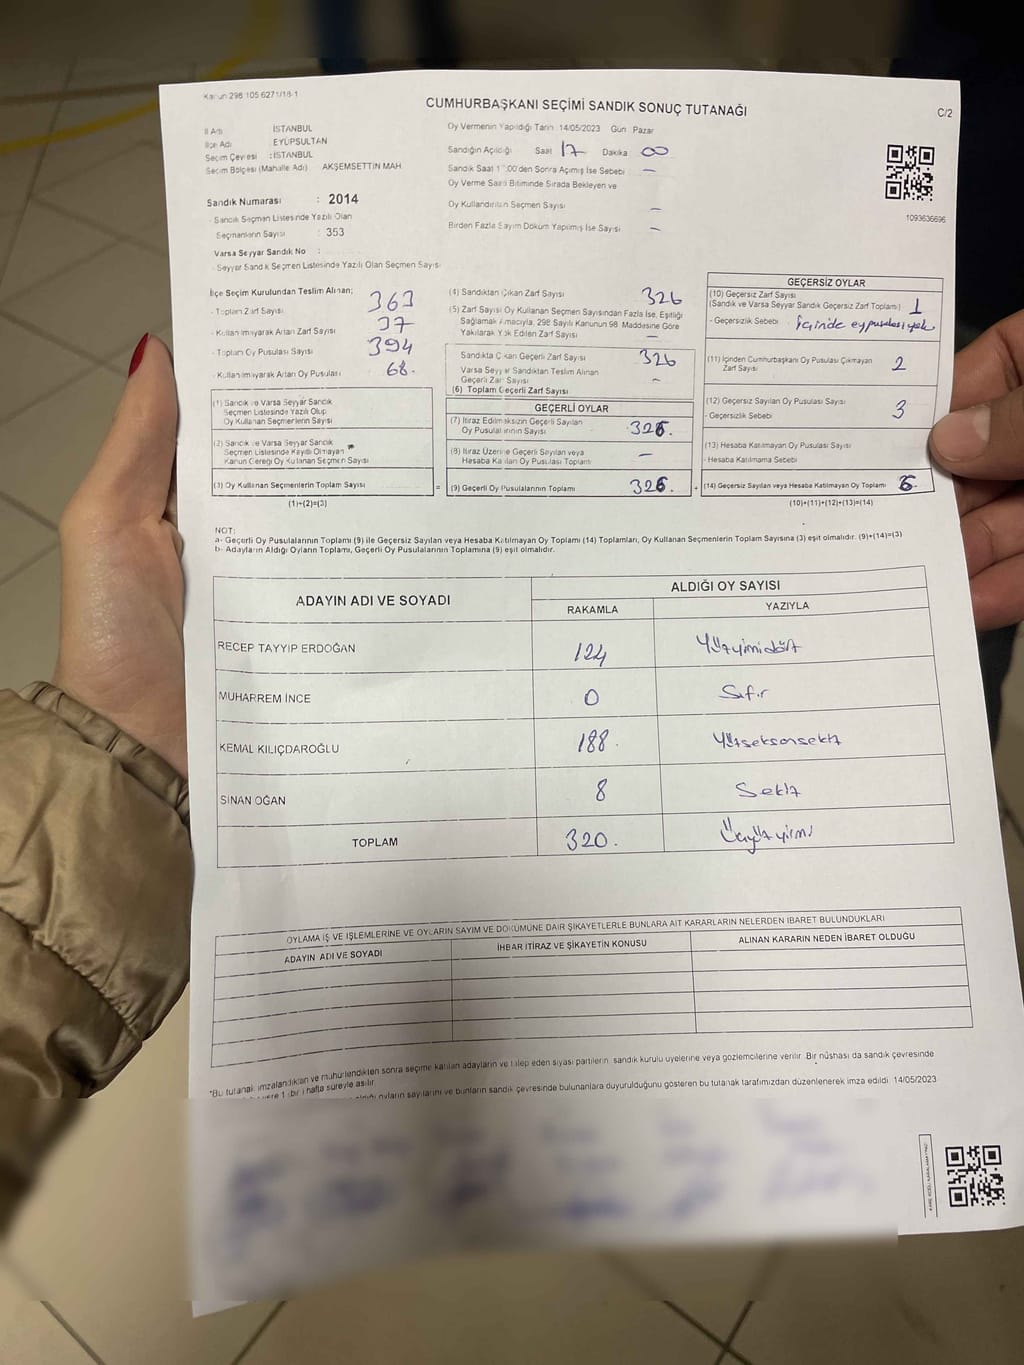 Kanun 298 105 6271/18-1
CUMHURBAŞKANI SEÇİMİ SANDIK SONUÇ TUTANAĞI
C/2
İl Adı : İSTANBUL
İlçe Adı : EYÜPSULTAN
Seçim Çevresi : İSTANBUL
Seçim Bölgesi (Mahalle Adı) : AKŞEMSETTİN MAH.
Sandık Numarası : 2014
- Sandık Seçmen Listesinde Yazılı Olan
Seçmenlerin Sayısı : 353
Varsa Seyyar Sandık No :
- Seyyar Sandık Seçmen Listesinde Yazılı Olan Seçmen Sayısı
Oy Vermenin Yapıldığı Tarih : 14/05/2023 Gün : Pazar
Sandığın Açıldığı Saat 17 Dakika 00
Sandık Saat 17:00'den Sonra Açılmış İse Sebebi —
Oy Verme Saati Bitiminde Sırada Bekleyen ve
Oy Kullandırılan Seçmen Sayısı —
Birden Fazla Sayım Döküm Yapılmış İse Sayısı —
1093636696
İlçe Seçim Kurulundan Teslim Alınan;
- Toplam Zarf Sayısı 363
- Kullanılmayarak Artan Zarf Sayısı 37
- Toplam Oy Pusulası Sayısı 394
- Kullanılmayarak Artan Oy Pusulası 68.
(1) Sandık ve Varsa Seyyar Sandık
Seçmen Listesinde Yazılı Olup
Oy Kullanan Seçmenlerin Sayısı
(2) Sandık ve Varsa Seyyar Sandık
Seçmen Listesinde Kayıtlı Olmayan
Kanun Gereği Oy Kullanan Seçmen Sayısı
(3) Oy Kullanan Seçmenlerin Toplam Sayısı =
(1)+(2)=(3)
(4) Sandıktan Çıkan Zarf Sayısı 326
(5) Zarf Sayısı Oy Kullanan Seçmen Sayısından Fazla İse, Eşitliği
Sağlamak Amacıyla, 298 Sayılı Kanunun 98. Maddesine Göre
Yakılarak Yok Edilen Zarf Sayısı —
Sandıkta Çıkan Geçerli Zarf Sayısı 326
Varsa Seyyar Sandıktan Teslim Alınan
Geçerli Zarf Sayısı —
(6) Toplam Geçerli Zarf Sayısı
GEÇERLİ OYLAR
(7) İtiraz Edilmeksizin Geçerli Sayılan
Oy Pusulalarının Sayısı 326.
(8) İtiraz Üzerine Geçerli Sayılan veya
Hesaba Katılan Oy Pusulası Toplamı —
(9) Geçerli Oy Pusulalarının Toplamı 326. +
GEÇERSİZ OYLAR
(10) Geçersiz Zarf Sayısı
(Sandık ve Varsa Seyyar Sandık Geçersiz Zarf Toplamı) 1
- Geçersizlik Sebebi İçinde oy pusulası yok
(11) İçinden Cumhurbaşkanı Oy Pusulası Çıkmayan
Zarf Sayısı 2
(12) Geçersiz Sayılan Oy Pusulası Sayısı 3
- Geçersizlik Sebebi
(13) Hesaba Katılmayan Oy Pusulası Sayısı
- Hesaba Katılmama Sebebi
(14) Geçersiz Sayılan veya Hesaba Katılmayan Oy Toplamı 6.
(10)+(11)+(12)+(13)=(14)
NOT:
a- Geçerli Oy Pusulalarının Toplamı (9) ile Geçersiz Sayılan veya Hesaba Katılmayan Oy Toplamı (14) Toplamları, Oy Kullanan Seçmenlerin Toplam Sayısına (3) eşit olmalıdır. (9)+(14)=(3)
b- Adayların Aldığı Oyların Toplamı, Geçerli Oy Pusulalarının Toplamına (9) eşit olmalıdır.
ADAYIN ADI VE SOYADI
ALDIĞI OY SAYISI
RAKAMLA YAZIYLA
RECEP TAYYİP ERDOĞAN 124 Yüzyirmidört
MUHARREM İNCE 0 Sıfır
KEMAL KILIÇDAROĞLU 188. Yüzseksensekiz
SİNAN OĞAN 8 Sekiz
TOPLAM 320. Üçyüzyirmi
OYLAMA İŞ VE İŞLEMLERİNE VE OYLARIN SAYIM VE DÖKÜMÜNE DAİR ŞİKAYETLERLE BUNLARA AİT KARARLARIN NELERDEN İBARET BULUNDUKLARI
ADAYIN ADI VE SOYADI İHBAR İTİRAZ VE ŞİKAYETİN KONUSU ALINAN KARARIN NEDEN İBARET OLDUĞU
*Bu tutanak imzalandıktan ve mühürlendikten sonra seçime katılan adayların ve talep eden siyasi partilerin sandık kurulu üyelerine veya gözlemcilerine verilir. Bir nüshası da sandık çevresinde
1 bir hafta süreyle asılır.
oyların sayılarını ve bunların sandık çevresinde bulunanlara duyurulduğunu gösteren bu tutanak tarafımızdan düzenlenerek imza edildi. 14/05/2023